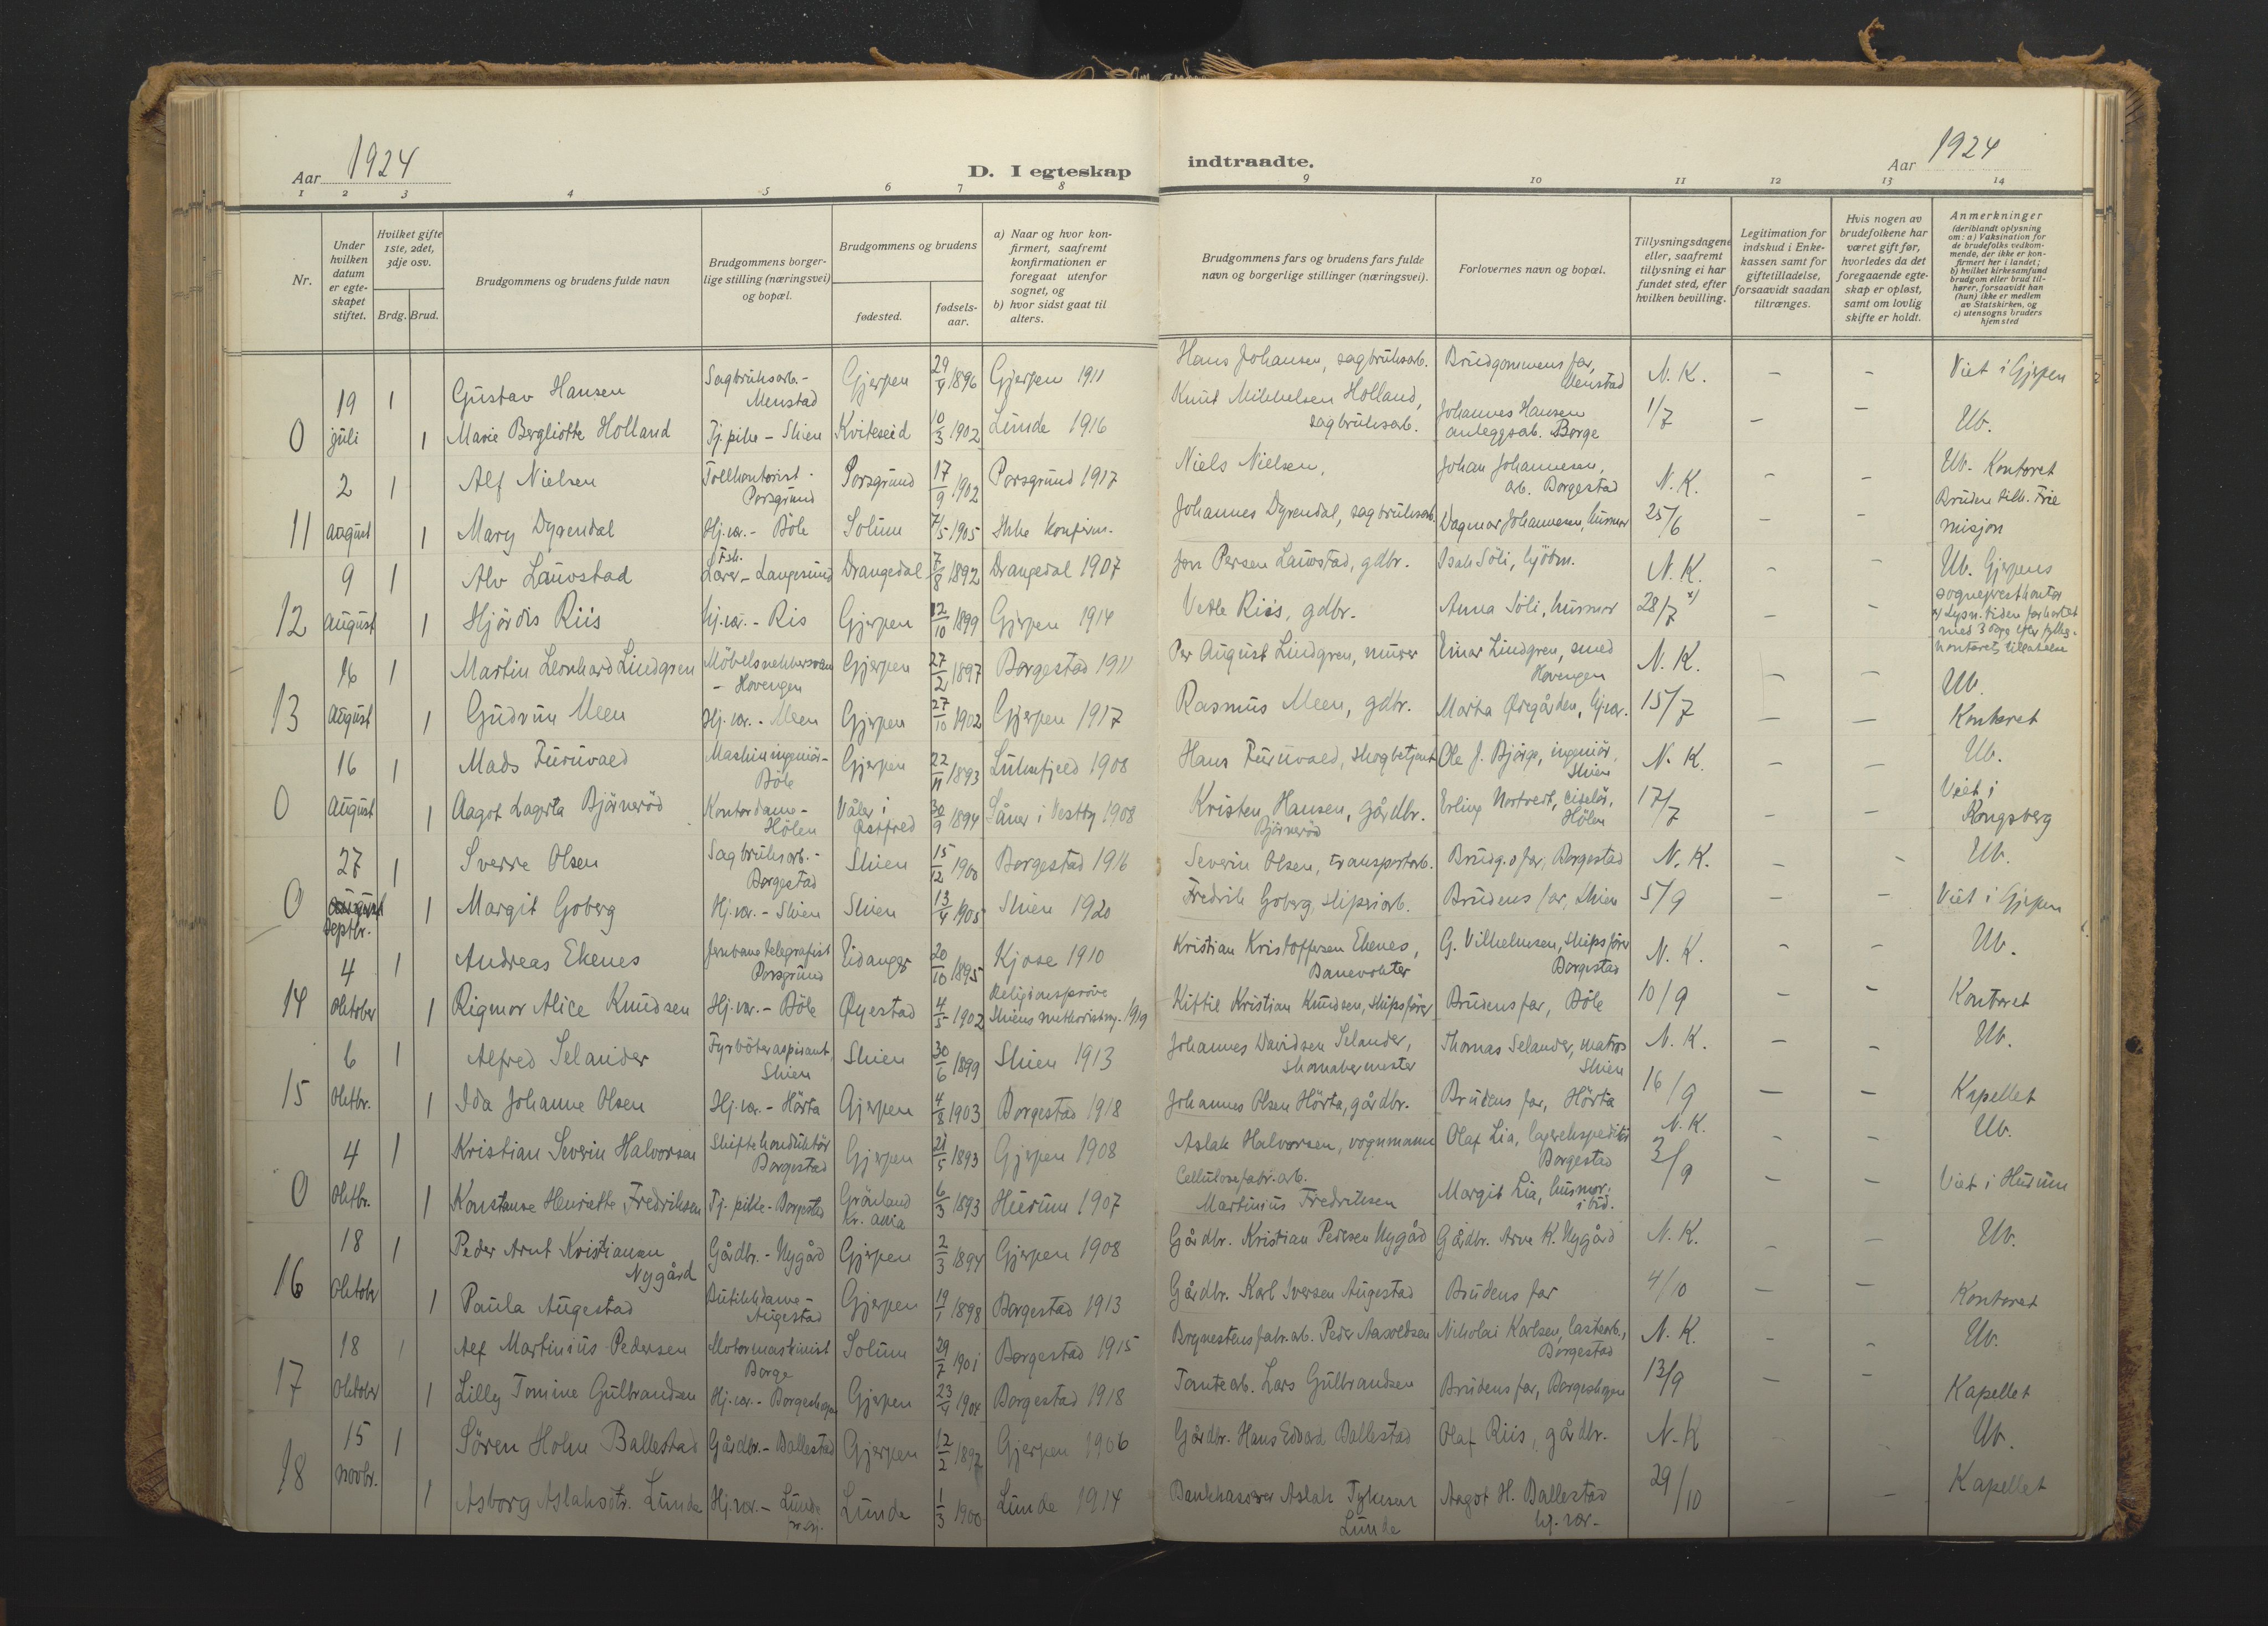 Aar 1924
D. I egteskap indtraadte.
Aar 1924
1 2 3 4 5 6 7 8 9 10 11 12 13 14
Nr.
Under hvilken datum er egteskapet stiftet.
Hvilket gifte 1ste, 2det, 3dje osv.
Brdg. Brud.
Brudgommens og brudens fulde navn
Brudgommens borgerlige stilling (næringsvei) og bopæl.
Brudgommens og brudens
fødested.
fødselsaar.
a) Naar og hvor konfirmert, saafremt konfirmationen er foregaat utenfor sognet, og
b) hvor sidst gaat til alters.
Brudgommens fars og brudens fars fulde navn og borgerlige stillinger (næringsvei).
Forlovernes navn og bopæl.
Tillysningsdagene eller, saafremt tillysning ei har fundet sted, efter hvilken bevilling.
Legitimation for indskud i Enkekassen samt for giftetilladelse, forsaavidt saadan tiltrænges.
Hvis nogen av brudefolkene har været gift før, hvorledes da det foregaaende egteskap er opløst, samt om lovlig skifte er holdt.
Anmerkninger (deriblandt oplysning om: a) Vaksination for de brudefolks vedkommende, der ikke er konfirmert her i landet; b) hvilket kirkesamfund brudgom eller brud tilhører, forsaavidt han (hun) ikke er medlem av Statskirken, og c) utensogns bruders hjemsted
19 1 Gustav Hansen Sagbruksarb. - Menstad Gjerpen 29/4 1896 Gjerpen 1911 Hans Johansen, sagbruksarb. Brudgommens far, Menstad N. K. - - Viet i Gjerpen
0 juli 1 Marie Bergliotte Holland Tj. pike - Skien Kviteseid 10/3 1902 Lunde 1916 Knut Mikkelsen Holland, sagbruksarb. Johannes Hansen anleggsarb. Borge 1/7 - - Ub.
2 1 Alf Nielsen Tollkontorist - Porsgrund Porsgrund 17/9 1902 Porsgrund 1917 Niels Nielsen, Johan Johannesen, arb. Borgestad N. K. - - Ub. Kontoret
11 august 1 Mary Dyrendal Hj. vær. - Böle Solum 7/5 1905 Ikke konfirm. Johannes Dyrendal, sagbruksarb. Dagmar Johannesen, husmor 25/6 - - Bruden tilh. Frie misjon
9 1 Alv Lauvstad Fsk. Lærer - Langesund Drangedal 7/8 1892 Drangedal 1907 Jon Persen Lauvstad, gdbr. Isak Söli, N. K. - - Ub. Gjerpens sogneprestkontor
12 august 1 Hjördis Riis hj. vær. - Ris Gjerpen 12/10 1899 Gjerpen 1914 Vetle Riis, gdbr. Anna Söli, husmor 28/7 x) - - x) Lysn. tiden forkortet med 3 dage efter fylkeskontorets tillatelse
16 1 Martin Leonhard Lindgren Möbelsnekkersvenn - Hovengen Gjerpen 27/2 1897 Borgestad 1911 Per August Lindgren, murer Einar Lindgren, smed Hovengen N. K. - - Ub.
13 august 1 Gudrun Meen Hj. vær. - Meen Gjerpen 27/10 1902 Gjerpen 1917 Rasmus Meen, gdbr. Marta hj. vær. 15/7 - - Kontoret
16 1 Mads Furuvald Maskiningeniör - Böle Gjerpen 22/11 1893 Luksefjell 1908 Hans Furuvald, skogbetjent Ole J. Björge, ingeniör, Skien N. K. - - Ub.
0 august 1 Aagot Lagerta Björneröd Kontordame - Hölen Våler i Østfold 30/9 1894 Såner i Vestby 1908 Kristen Hansen, gårdbr. Björneröd Erling Nortvedt, Hölen 17/7 - - Viet i Kongsberg
27 1 Sverre Olsen Sagbruksarb. - Borgestad Skien 15/12 1900 Borgestad 1916 Severin Olsen, transportarb. Brudg.s far, Borgestad N. K. - - Ub.
0 Septbr. 1 Margit Goberg Hj. vær. - Skien Skien 13/4 1905 Skien 1920 Fredrik Goberg, sliperiarb. Brudens far, Skien 5/9 - - Viet i Gjerpen
4 1 Andreas Ekenes Jernbanetelegrafist Porsgrund Eidanger 20/10 1895 Kjose 1910 Kristian Kristoffersen Ekenes, Banevokter G. Vilhelmsen, skipsförer Borgestad N. K. - - Ub.
14 Oktober 1 Rigmor Alice Knudsen Hj. vær. - Böle Øyestad 4/5 1902 Religionspröve Skiens metodistmg. 1919 Kittil Kristian Knudsen, skipsförer Brudens far, Böle 10/9 - - Kontoret
6 1 Alfred Selander Fyrböteraspirant, Skien Skien 30/6 1899 Skien 1913 Johannes Davidsen Selander, Skomakermester Thomas Selander, matros Skien N. K. - - Ub.
15 Oktbr. 1 Ida Johanne Olsen Hj. vær. - Hörta Gjerpen 4/8 1903 Borgestad 1918 Johannes Olsen Hörta, gårdbr. Brudens far, Hörta 16/9 - - Kapellet
4 1 Kristian Severin Halvorsen Skiftekonduktör Borgestad Gjerpen 21/5 1893 Gjerpen 1908 Aslak Halvorsen, vognmann Olaf Lia, lagerekspeditör Borgestad N. K. - - Ub.
0 Oktbr. 1 Konstanse Henriette Fredriksen Tj. pike - Borgestad Grönland Kr. ania 6/3 1893 Hurum 1907 Cellulosefabr. arb. Martinius Fredriksen Margit Lia, husmor, ibid. 3/9 - - Viet i Hurum
18 1 Peder Arnt Kristiansen Nygård Gårdbr. - Nygård Gjerpen 2/3 1894 Gjerpen 1908 Gårdbr. Kristian Pedersen Nygård Gårdbr. Arne K. Nygård N. K. - - Ub.
16 Oktobr 1 Paula Augestad Butikkdame - Augestad Gjerpen 19/1 1898 Borgestad 1913 Gårdbr. Karl Iversen Augestad Brudens far 4/10 - - Kontoret
18 1 Alf Martinius Pedersen Motormaskinist Borge Solum 29/7 1901 Borgestad 1915 Brynestensfabr. arb. Peder Aaroldsen Nikolai Karlsen, lastearb., Borgestad N. K. - - Ub.
17 Oktober 1 Lilly Tomine Gulbrandsen Hj. vær. - Borgeskogen Gjerpen 23/4 1904 Borgestad 1918 Tomtearb. Lars Gulbrandsen Brudens far, Borgeskogen 13/9 - - Kapellet
15 1 Sören Holm Ballestad Gårdbr. - Ballestad Gjerpen 12/2 1892 Gjerpen 1906 Gårdbr. Hans Edvard Ballestad Olaf Riis, gårdbr. N. K Ub.
18 novbr. 1 Asborg Aslaksdtr. Lunde Hj. vær. - Lunde Lunde 1/3 1900 Lunde 1914 Bankkasserer Aslak Tykesen Lunde Aagot H. Ballestad hj. vær. - 29/10 - - Kapellet